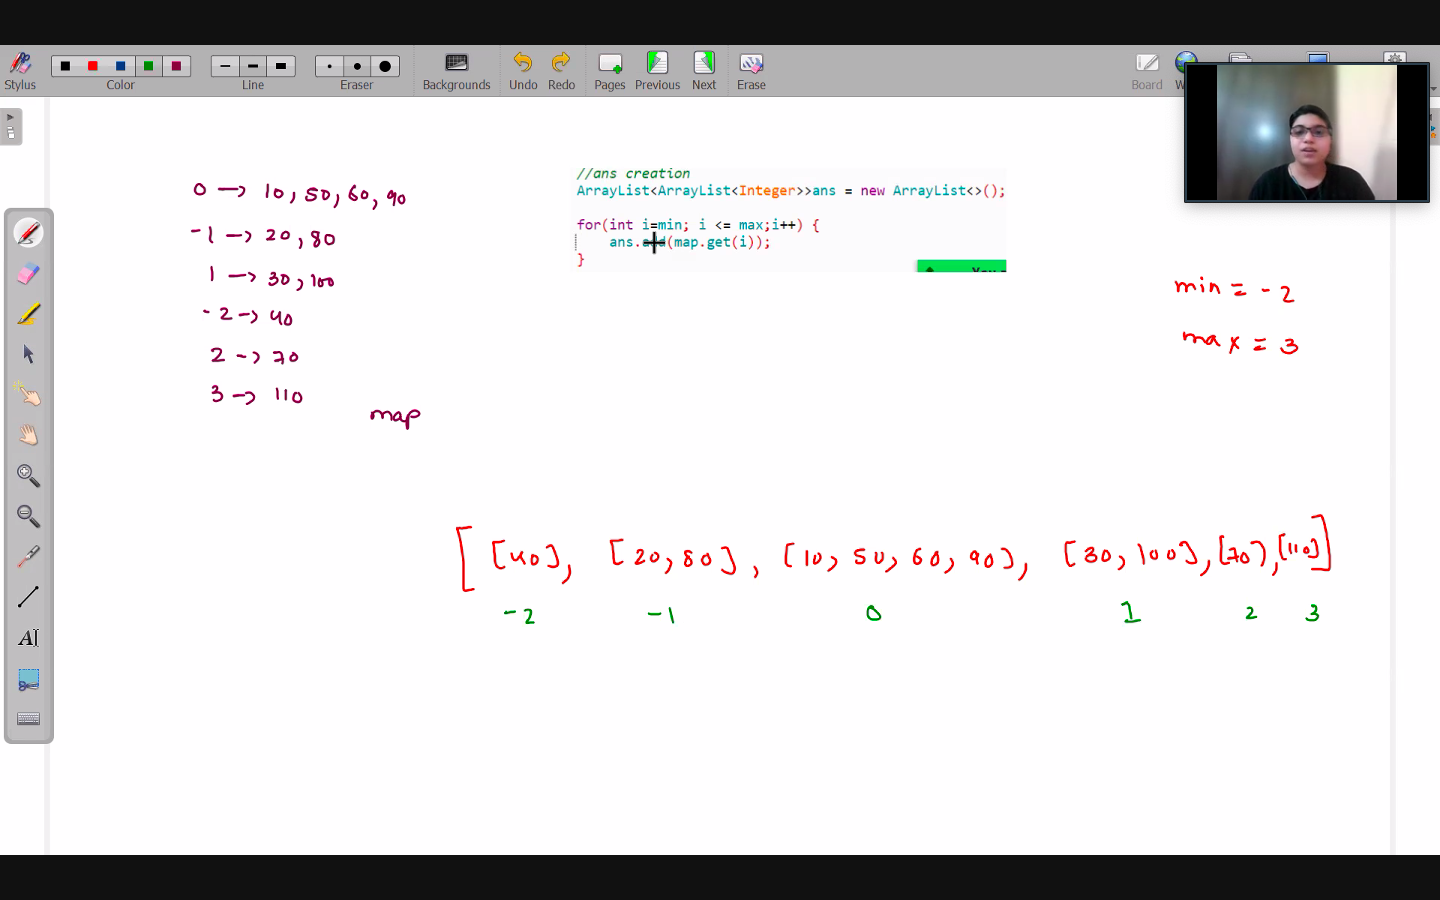 Stylus
Color
Line
Eraser
Backgrounds
Undo
Redo
Pages
Previous
Next
Erase
Board
0 -> 10, 50, 60, 90
-1 -> 20, 80
1 -> 30, 100
-2 -> 40
2 -> 70
3 -> 110
map
//ans creation
ArrayList<ArrayList<Integer>>ans = new ArrayList<>();
for(int i=min; i <= max;i++) {
ans.add(map.get(i));
}
min = -2
max = 3
[[40], [20, 80], [10, 50, 60, 90], [30, 100], [70], [110]]
-2 -1 0 1 2 3
AI